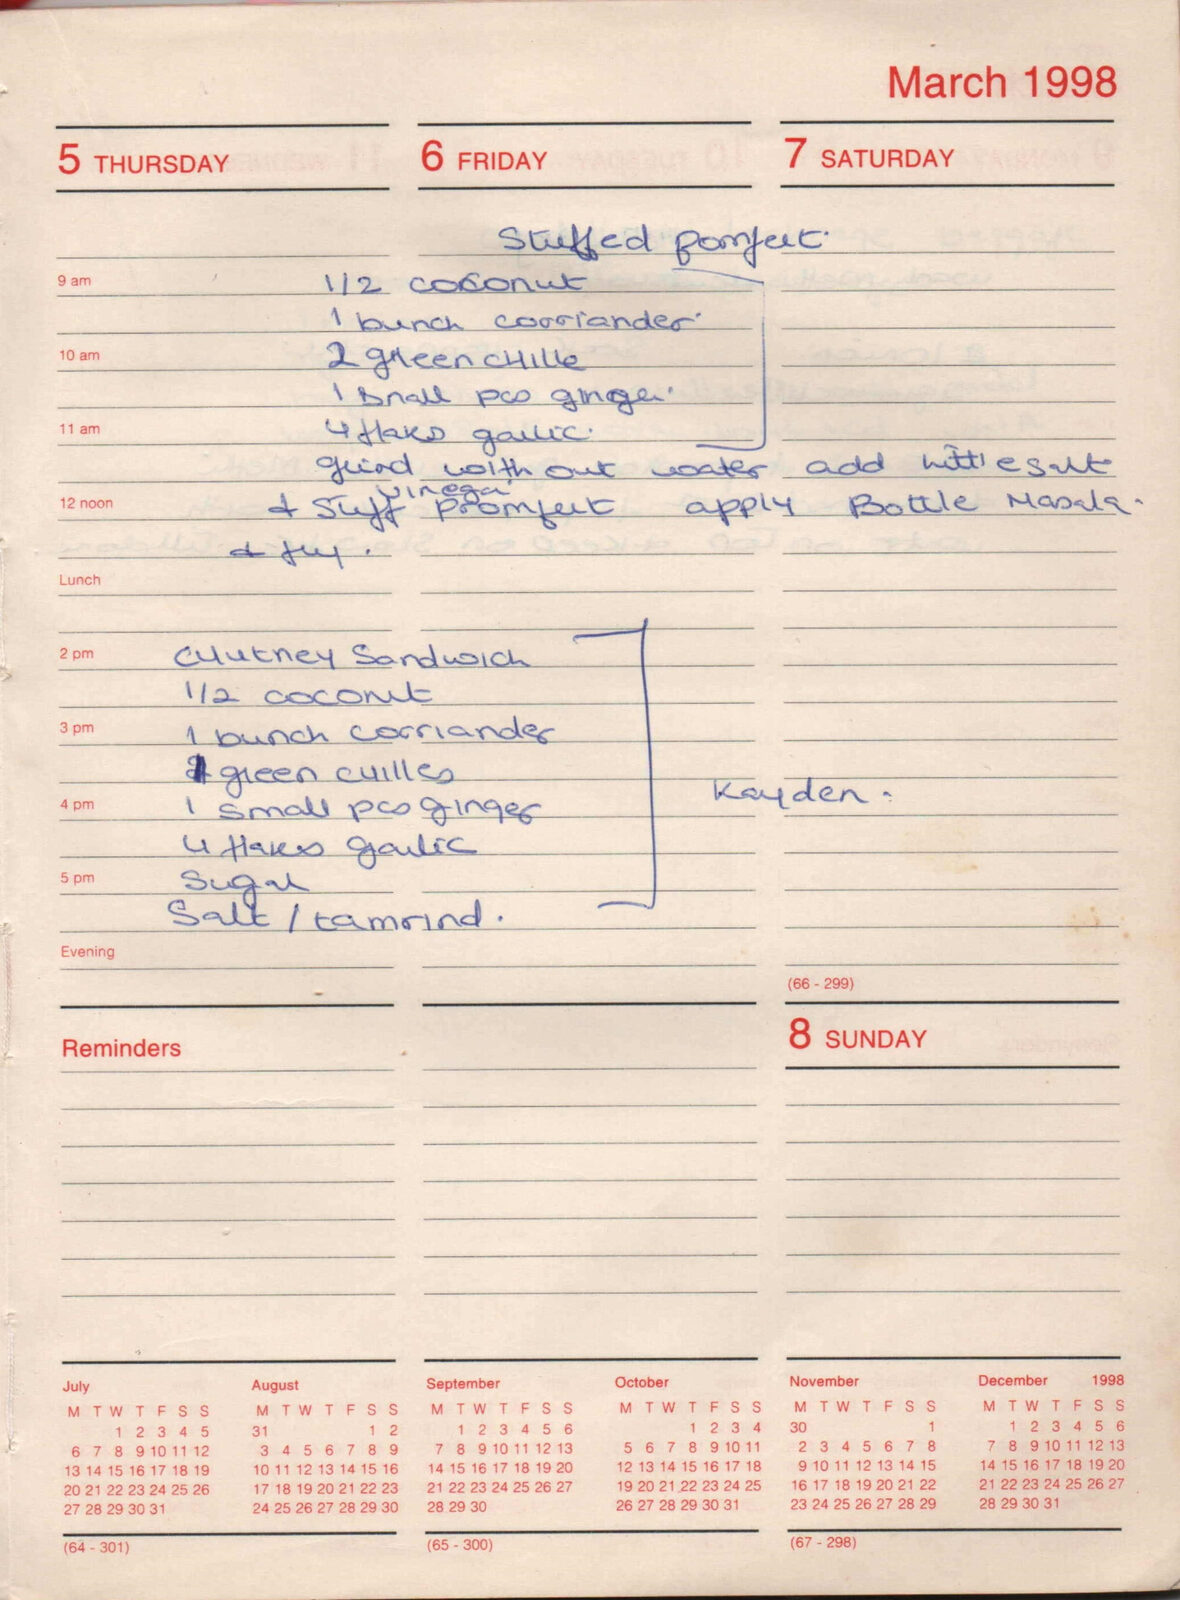 March 1998
5 THURSDAY
6 FRIDAY
7 SATURDAY
Stuffed pomfret
9 am
1/2 coconut
1 bunch corriander
10 am
2 green chille
1 small pcs ginger
11 am
4 flaks garlic
grind with out water add little salt
vinegar
12 noon
& stuff promfret apply Bottle Masala.
& fry.
Lunch
2 pm
Chutney Sandwich
1/2 coconut
3 pm
1 bunch corriander
green chilles
4 pm
1 small pcs ginger
Kayden
4 flakes garlic
5 pm
Sugar
Salt / tamrind.
Evening
(66 - 299)
Reminders
8 SUNDAY
July August September October November December 1998
M T W T F S S M T W T F S S M T W T F S S M T W T F S S M T W T F S S M T W T F S S
1 2 3 4 5 31 1 2 1 2 3 4 5 6 1 2 3 4 30 1 1 2 3 4 5 6
6 7 8 9 10 11 12 3 4 5 6 7 8 9 7 8 9 10 11 12 13 5 6 7 8 9 10 11 2 3 4 5 6 7 8 7 8 9 10 11 12 13
13 14 15 16 17 18 19 10 11 12 13 14 15 16 14 15 16 17 18 19 20 12 13 14 15 16 17 18 9 10 11 12 13 14 15 14 15 16 17 18 19 20
20 21 22 23 24 25 26 17 18 19 20 21 22 23 21 22 23 24 25 26 27 19 20 21 22 23 24 25 16 17 18 19 20 21 22 21 22 23 24 25 26 27
27 28 29 30 31 24 25 26 27 28 29 30 28 29 30 26 27 28 29 30 31 23 24 25 26 27 28 29 28 29 30 31
(64 - 301)
(65 - 300)
(67 - 298)